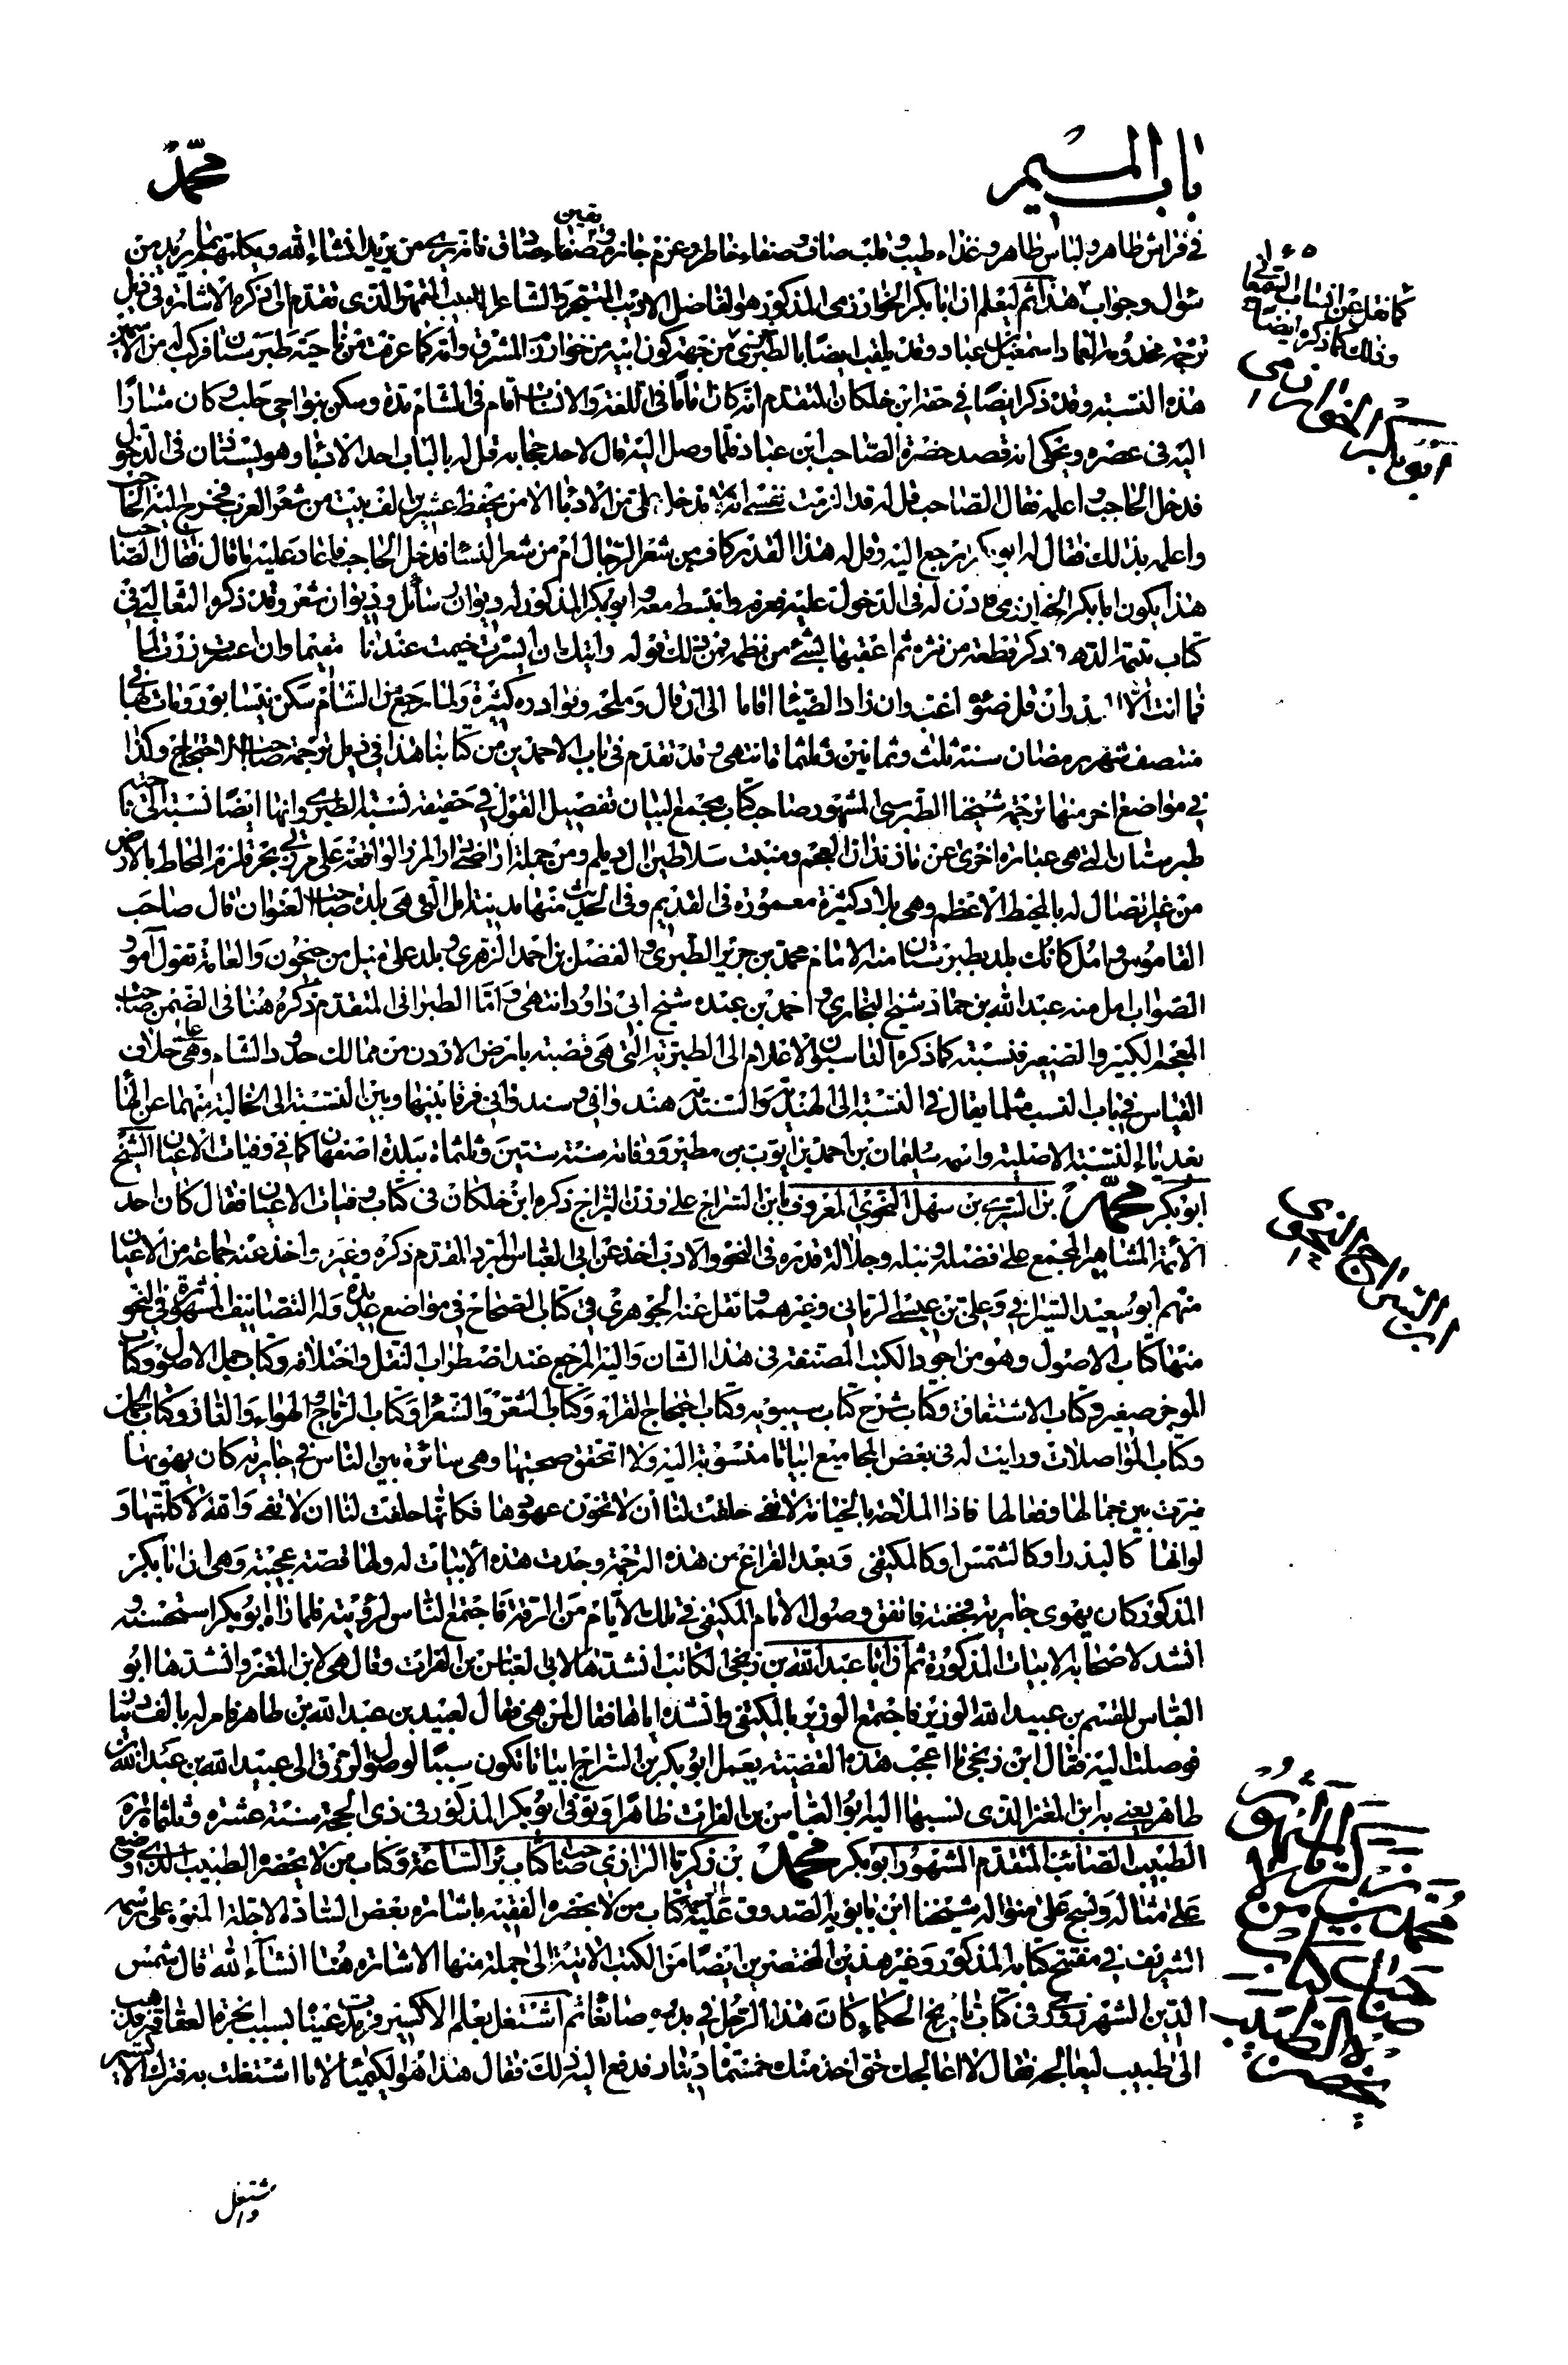 باب الميم
محمد
في فراش طاهر ولباس طاهر وغذاء طيب وقلب صاف وصفاء خاطر وعزم جازم وصفاء ويقين صادق فانه يرى من يريد انشاء الله ويكلمهم بما يريد من
سؤال وجواب هذا ثم ليعلم ان ابا بكر الخوارزمي المذكور هو الفاضل الاديب المتبحر والشاعر اللبيب المتمهر الذي تقدم الى ذكره الاشارة في ذيل
ترجمة مخدومه العماد اسمعيل بن عباد وقد يلقب ايضا بالطبرخزي من جهة كون ابيه من خوارزم المشرق وامه كما عرفت من ناحية طبرستان فركب له من الاسمين
هذه النسبة وقد ذكر ايضا في حقه ابن خلكان المتقدم انه كان اماما في اللغة والانساب اقام في الشام مدة وسكن بنواحي حلب وكان مشارا
اليه في عصره ويحكى انه قصد حضرة الصاحب ابن عباد فلما وصل اليه قال لاحد حجابه قل له بالباب احد الادباء وهو يستاذن في الدخول
فدخل الحاجب واعلمه فقال الصاحب قل له قد الزمت نفسي ان لا يدخل علي من الادباء الا من يحفظ عشرين الف بيت من شعر العرب فخرج اليه الحاجب
واعلمه بذلك فقال له ابو بكر ارجع اليه وقل له هذا القدر كاف من شعر الرجال ام من شعر النسا فدخل الحاجب فاعاد عليه ما قال فقال الصاحب
هذا يكون ابا بكر الخوارزمي فاذن له في الدخول عليه فعرفه وانبسط معه وابو بكر المذكور له ديوان رسائل وديوان شعر وقد ذكره الثعالبي في
كتاب يتيمة الدهر وذكر قطعة من نثره ثم اعقبها بشئ من نظمه فمن ذلك قوله رايتك ان ايسرت خيمت عندنا مقيما وان اعسرت زرت لماما
فما انت الا البدر ان قل ضوئه اغب وان زاد الضياء اقاما الى ان قال وملحه ونوادره كثيرة ولما رجع من الشام سكن نيسابور ومات بها في
منتصف شهر رمضان سنة ثلث وثمانين وثلثمائة انتهى وقد تقدم في باب الاحمدين من كتابنا هذا في ذيل ترجمة صاحب الاحتجاج وكذا
في مواضع اخر منها ترجمة شيخنا الطبرسي المشهور صاحب كتاب مجمع البيان تفصيل القول في حقيقة نسبة الطبري وانها ايضا نسبة الى ناحية
طبرستان التي هي عبارة اخرى عن مازندران العجم ومنبت سلاطين الديلم ومن جملة اراضي دار المرز الواقعة على مرقى بحر قلزم المحاط بالارض
من غير اتصال له بالمحيط الاعظم وهي بلاد كثيرة معمورة في القديم وفي الحديث منها مدينة امل التي هي بلدة صاحب العنوان قال صاحب
القاموس وامل كانك بلد بطبرستان منه الامام محمد بن جرير الطبري والفضل بن احمد الزهري وبلد على ميل من جيحون والعامة تقول آمو و
الصواب امل منه عبد الله بن حماد شيخ البخاري واحمد بن عبده شيخ ابي داود انتهى واما الطبراني المتقدم ذكره هنا في الضمن صاحب
المعجم الكبير والصغير فنسبته كما ذكره النسابون الاعلام الى الطبرية التي هي قصبة بارض الاردن من ممالك حدود الشام وهي على خلاف
القياس في باب النسب مثل ما يقال في النسبة الى الهندية والسندية هندواني وسندواني فرقا بينها وبين النسبة الى الخالية منهما عن الهاء
بعد ياء النسبة الاصلية واسمه سليمان بن احمد بن ايوب بن مطير ووفاته سنة ستين وثلثمائة ببلدة اصفهان كما في وفيات الاعيان الشيخ
ابو بكر محمد بن السري بن سهل النحوي المعروف بابن السراج على وزن البراج ذكره ابن خلكان في كتاب وفيات الاعيان فقال كان احد
الائمة المشاهير المجمع على فضله ونبله وجلالة قدره في النحو والادب اخذ عن ابي العباس المبرد المقدم ذكره وغيره واخذ عنه جماعة من الاعيان
منهم ابو سعيد السيرافي وعلي بن عيسى الرماني وغيرهما ونقل عنه الجوهري في كتاب الصحاح في مواضع عديدة وله التصانيف المشهورة في النحو
منها كتاب الاصول وهو من اجود الكتب المصنفة في هذا الشان واليه المرجع عند اضطراب النقل واختلافه وكتاب جمل الاصول وكتاب
الموجز صغير وكتاب الاشتقاق وكتاب شرح كتاب سيبويه وكتاب احتجاج القراء وكتاب الشعر والشعراء وكتاب الرياح والهواء والنار وكتاب الجمل
وكتاب المواصلات ورايت له في بعض المجاميع ابياتا منسوبة اليه ولا اتحقق صحتها وهي سائرة بين الناس في جارية كان يهويها
ميزت بين جمالها وفعالها فاذا الملاحة بالخيانة لا تفي حلفت لنا ان لا تخون عهودها فكانما حلفت لنا ان لا تفي والله لا كلمتها و
لو انها كالبدر او كالشمس او كالمكتفي وبعد الفراغ من هذه الترجمة وجدت هذه الابيات له ولها قصة عجيبة وهي ان ابا بكر
المذكور كان يهوى جارية فجفته فاتفق وصول الامام المكتفي في تلك الايام من الرقة فاجتمع الناس لرؤيته فلما رآه ابو بكر استحسنه و
انشد لاصحابه الابيات المذكورة ثم ان ابا عبد الله بن زنجي الكاتب انشدها لابي العباس بن الفرات وقال هي لابن المعتز وانشدها ابو
العباس للقسم بن عبيد الله الوزير فاجتمع الوزير بالمكتفي وانشده اياها فقال لمن هي فقال لعبيد بن عبد الله بن طاهر فامر له بالف دينار
فوصلت اليه فقال ابن زنجي ما اعجب هذه القضية يعمل ابو بكر بن السراج ابياتا تكون سببا لوصول الرزق الى عبيد الله بن عبد الله بن
طاهر يعني به ابن المعتز الذي نسبها اليه ابو العباس بن الفرات ظاهرا وتوفى ابو بكر المذكور في ذي الحجة سنة ستة عشرة وثلثمائة
الطبيب الصائب المتقدم المشهور ابو بكر محمد بن زكريا الرازي صاحب كتاب برء الساعة وكتاب من لا يحضره الطبيب الذي وضع
على مثاله ونسج على منواله شيخنا ابن بابويه الصدوق عليه الرحمة كتاب من لا يحضره الفقيه باشارة بعض السادة الاجلة المنوه على رسمه
الشريف في مفتتح كتابه المذكور وغير هذين المختصرين ايضا من الكتب الاتية الى جملة منها الاشارة هنا انشاء الله قال شمس
الدين الشهرزوري في كتاب تاريخ الحكماء كان هذا الرجل في بدء امره صائغا ثم اشتغل بعلم الاكسير فرمدت عيناه بسبب ابخرة العقاقير فذهب
الى طبيب ليعالجه فقال لا اعالجك حتى اخذ منك خمسمائة دينار فدفع اليه ذلك فقال هذا هو الكيميا لا ما اشتغلت به فترك الاكسير
واشتغل
كما نقل عن انساب السمعاني
وذلك كما ذكره ايضا
ابو بكر الخوارزمي
ابن السراج النحوي
محمد بن زكريا الرازي
صاحب كتاب من
لا يحضره الطبيب